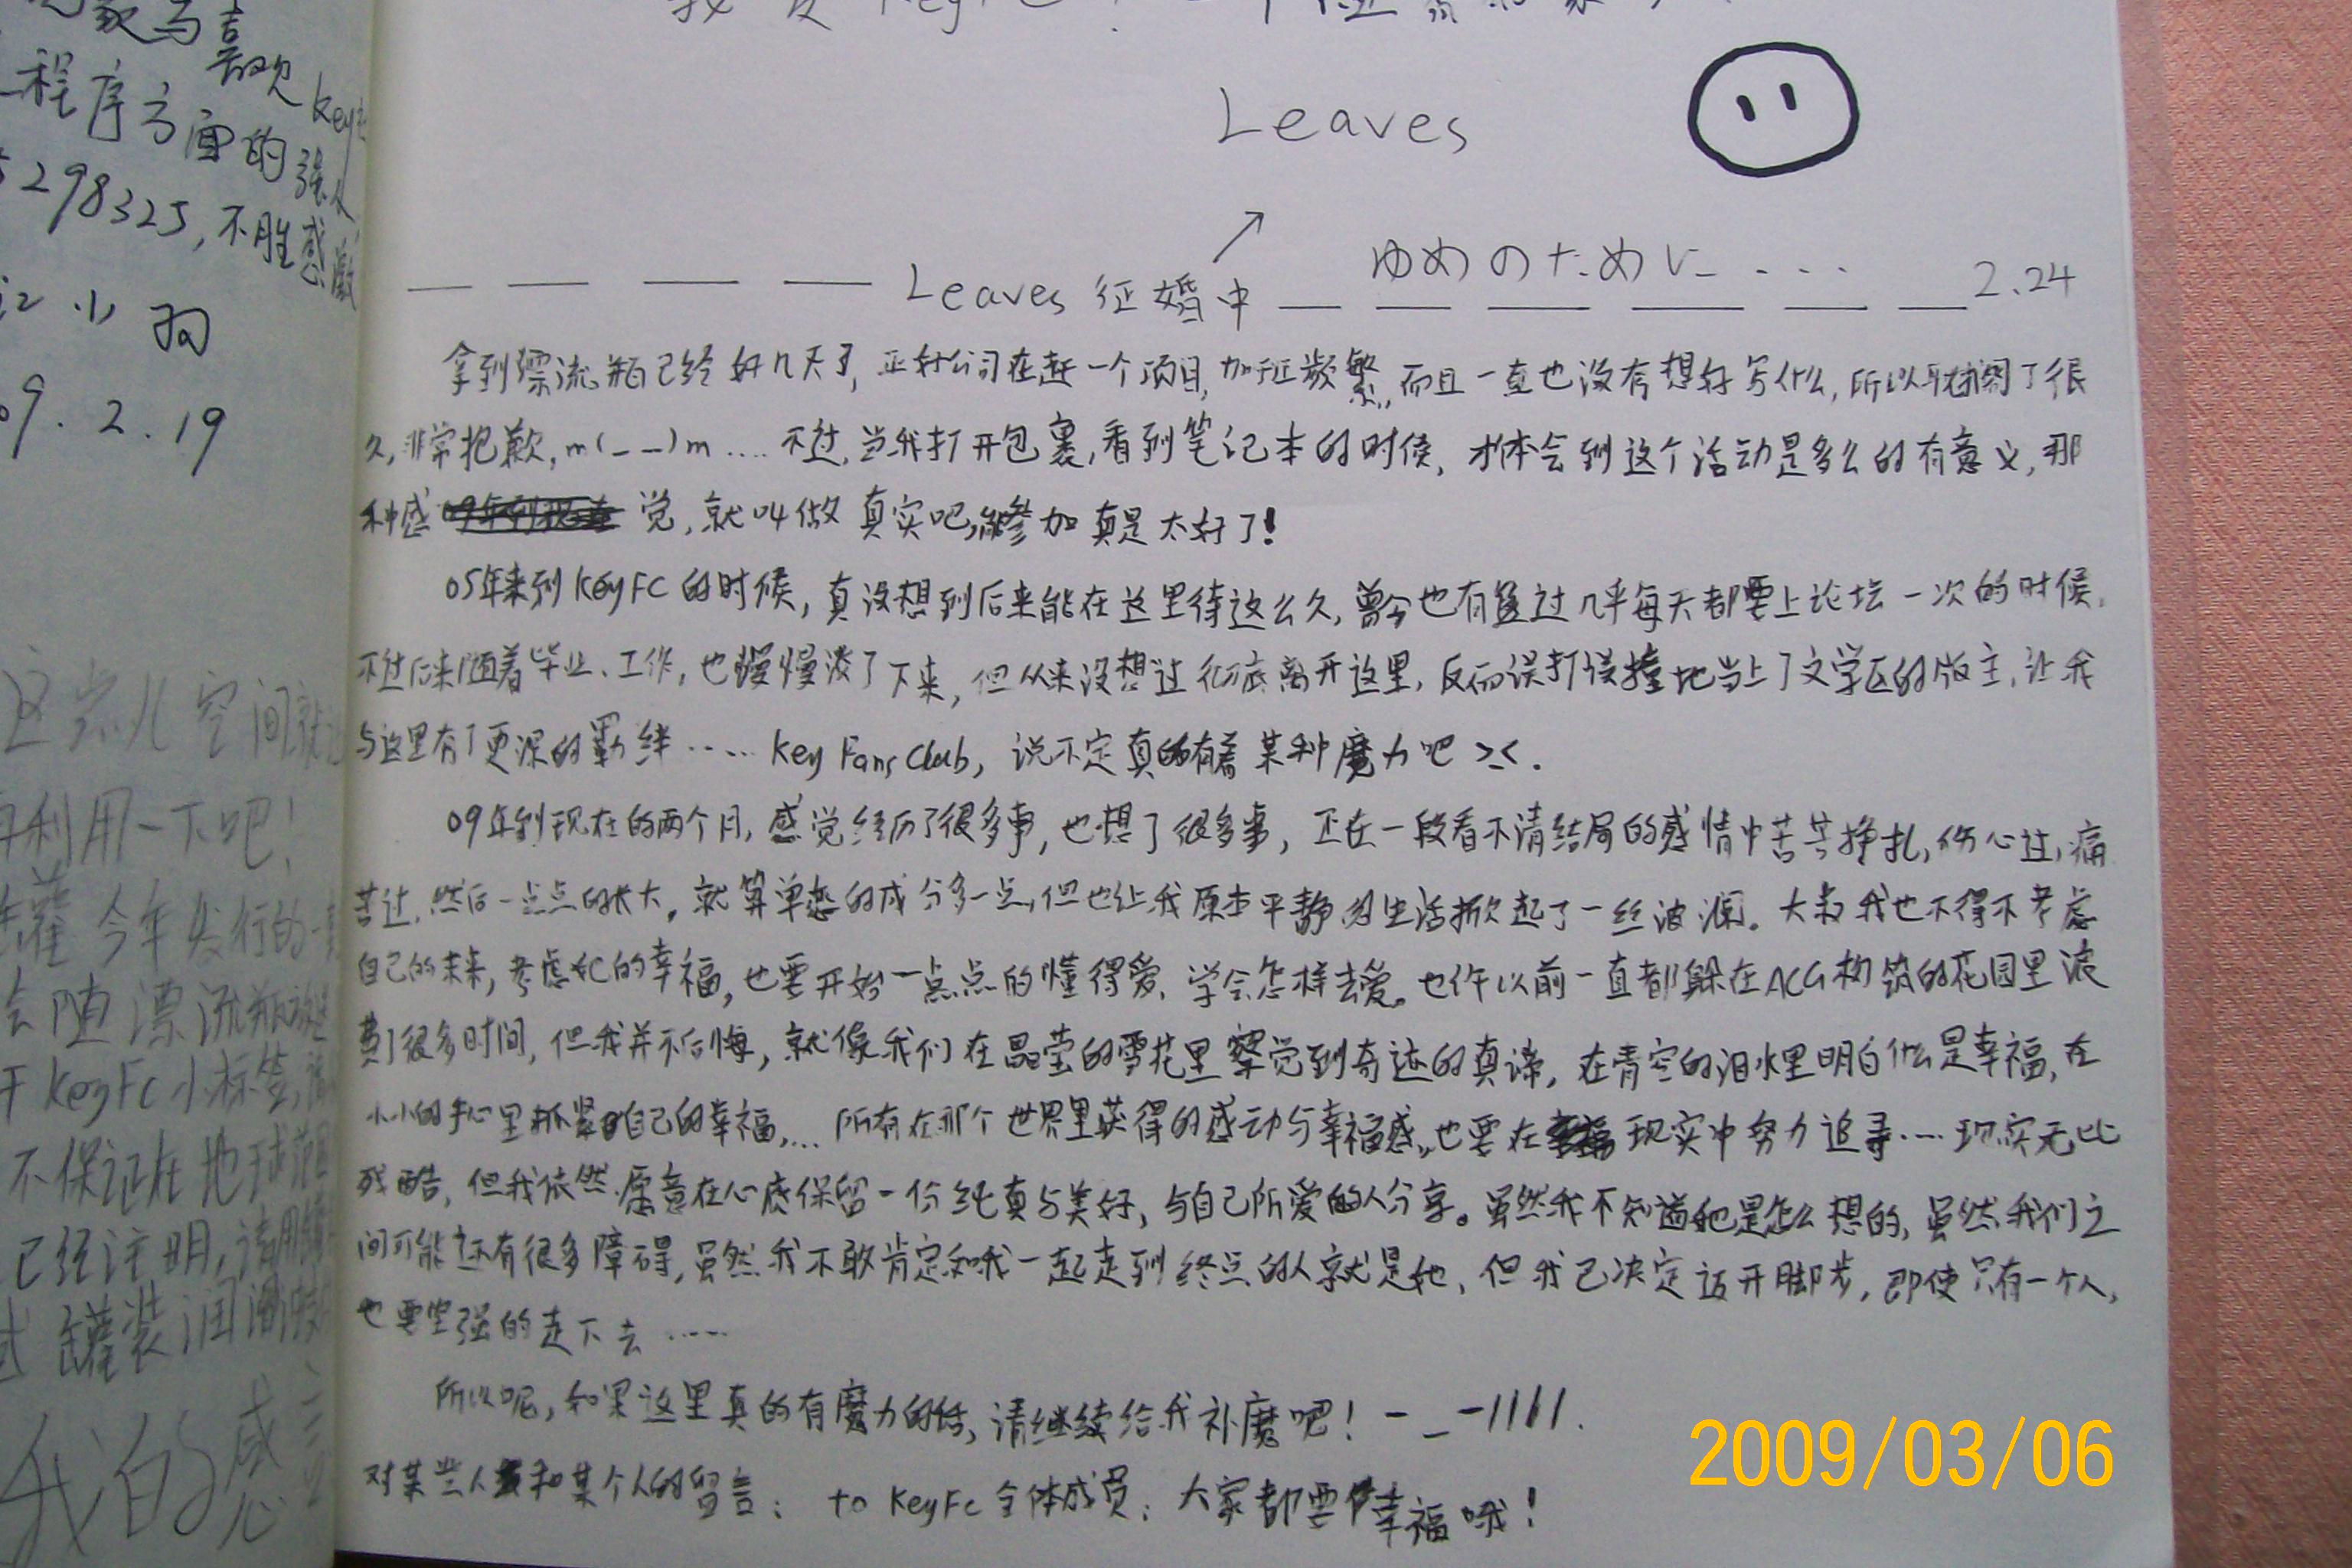 我 KeyFC
Leaves
ゆめのために....
Leaves 征婚中
2.24
拿到漂流瓶已经好几天了,正好公司在赶一个项目,加班频繁,而且一直也没有想好写什么,所以耽搁了很
久,非常抱歉,m(_ _)m .... 不过,当我打开包裹,看到笔记本的时候,才体会到这个活动是多么的有意义,那
种感觉,就叫做真实吧,能参加真是太好了!
05年来到KeyFC的时候,真没想到后来能在这里待这么久,曾今也有过几乎每天都要上论坛一次的时候,
不过后来随着毕业、工作,也慢慢淡了下来,但从来没想过彻底离开这里,反而误打误撞地当上了文学区的版主,让我
与这里有了更深的羁绊……Key Fans Club,说不定真的有着某种魔力吧 >_<.
09年到现在的两个月,感觉经历了很多事,也想了很多事,正在一段看不清结局的感情中苦苦挣扎,伤心过,痛
苦过,然后一点点的长大。就算单恋的成分多一点,但也让我原本平静的生活掀起了一丝波澜。大叔我也不得不考虑
自己的未来,考虑她的幸福,也要开始一点点的懂得爱、学会怎样去爱。也许以前一直都躲在ACG构筑的花园里浪
费了很多时间,但我并不后悔,就像我们在晶莹的雪花里察觉到奇迹的真谛,在青空的泪水里明白什么是幸福,在
小小的手心里抓紧自己的幸福,...所有在那个世界里获得的感动与幸福感,也要在现实中努力追寻……现实无比
残酷,但我依然愿意在心底保留一份纯真与美好,与自己所爱的人分享。虽然我不知道她是怎么想的,虽然我们之
间可能还有很多障碍,虽然我不敢肯定和我一起走到终点的人就是她,但我已决定迈开脚步,即使只有一个人,
也要坚强的走下去……
所以呢,如果这里真的有魔力的话,请继续给我补魔吧!-_-||||.
对某些人和某个人的留言: to KeyFc全体成员:大家都要幸福哦!
2009/03/06
喜欢Key
程序方面的强人
298325,不胜感激
小羽
09.2.19
这点儿空间就
再利用一下吧!
罐 今年发行的
会随漂流瓶
干KeyFc小标签,
不保证在地球范围
已经注明,请
罐装润
我的感